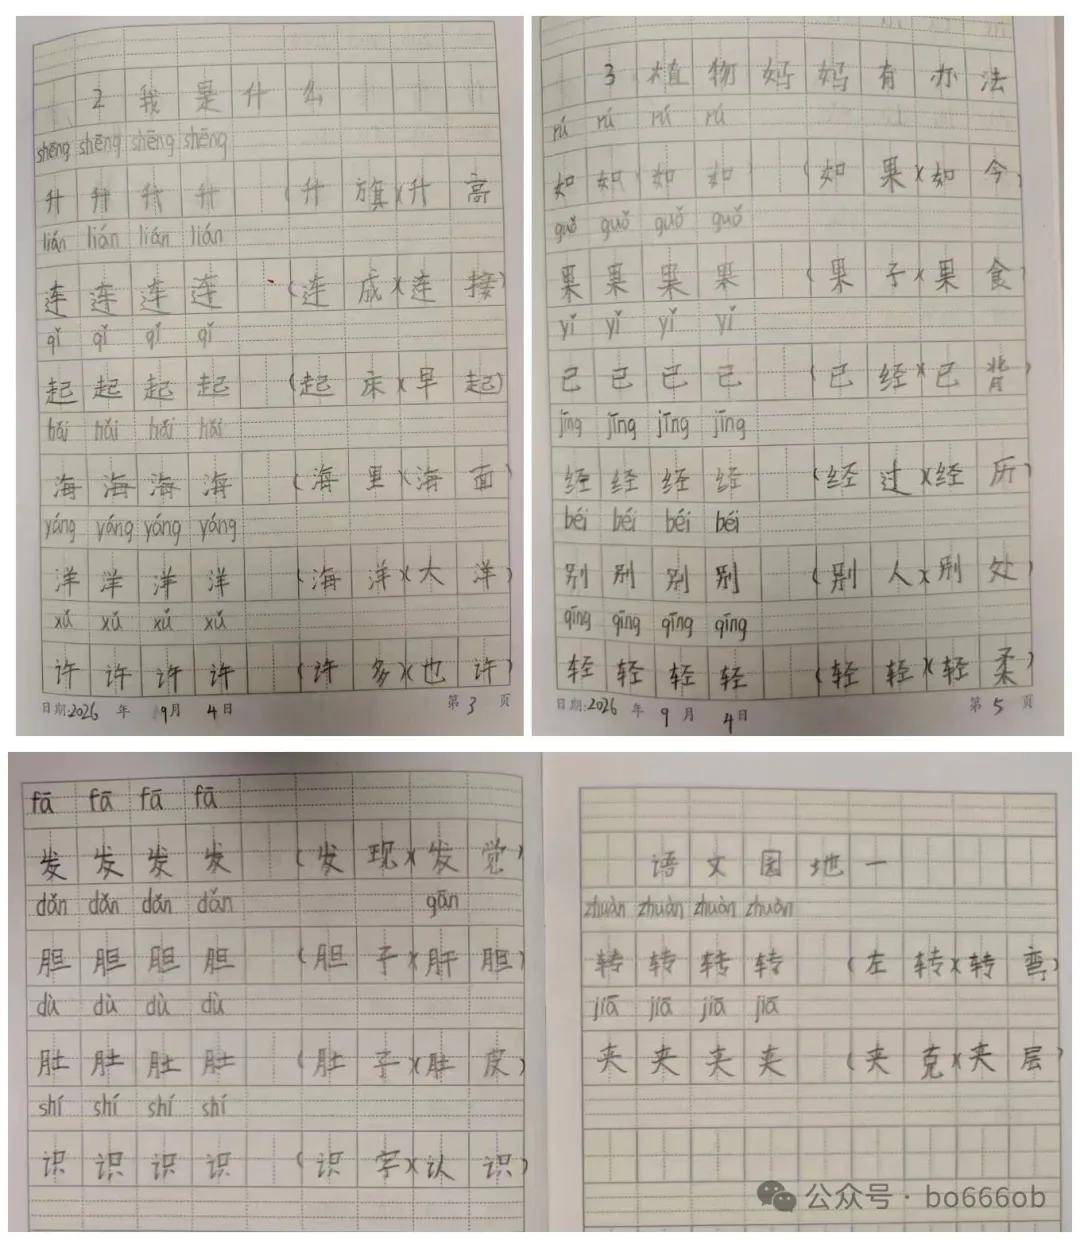 2 我是什么
shēng shēng shēng shēng
升 升 升 升 (升旗)(升高)
lián lián lián lián
连 连 连 连 (连成)(连接)
qǐ qǐ qǐ qǐ
起 起 起 起 (起床)(早起)
hǎi hǎi hǎi hǎi
海 海 海 海 (海里)(海面)
yáng yáng yáng yáng
洋 洋 洋 洋 (海洋)(大洋)
xǔ xǔ xǔ xǔ
许 许 许 许 (许多)(也许)
日期:2026 年 9月 4日 第 3 页
3 植物妈妈有办法
rú rú rú rú
如 如 如 如 (如果)(如今)
guǒ guǒ guǒ guǒ
果 果 果 果 (果子)(果食)
yǐ yǐ yǐ yǐ
已 已 已 已 (已经)(已背)
jīng jīng jīng jīng
经 经 经 经 (经过)(经历)
béi béi béi béi
别 别 别 别 (别人)(别处)
qīng qīng qīng qīng
轻 轻 轻 轻 (轻轻)(轻柔)
日期:2026 年 9 月 4日 第 5 页
fā fā fā fā
发 发 发 发 (发现)(发觉)
dǎn dǎn dǎn dǎn gān
胆 胆 胆 胆 (胆子)(肝胆)
dù dù dù dù
肚 肚 肚 肚 (肚子)(肚皮)
shí shí shí shí
识 识 识 识 (识字)(认识)
语文园地一
zhuàn zhuàn zhuàn zhuàn
转 转 转 转 (左转)(转弯)
jiā jiā jiā jiā
夹 夹 夹 夹 (夹克)(夹层)
公众号·bo666ob